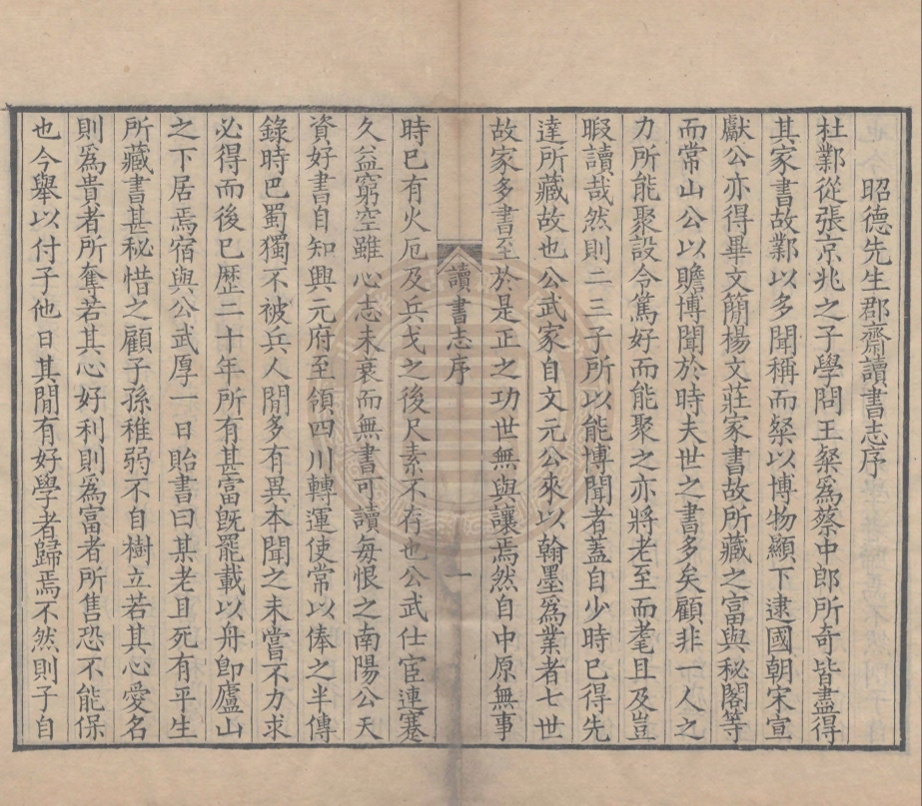 昭德先生郡齋讀書志序
杜鄴從張京兆之子學問王粲爲蔡中郎所奇皆盡得
其家書故鄴以多聞稱而粲以博物顯下逮國朝宋宣
獻公亦得畢文簡楊文莊家書故所藏之富與秘閣等
而常山公以贍博聞於時夫世之書多矣顧非一人之
力所能聚設令篤好而能聚之亦將老至而耄且及豈
暇讀哉然則二三子所以能博聞者蓋自少時已得先
達所藏故也公武家自文元公來以翰墨爲業者七世
故家多書至於是正之功世無與讓焉然自中原無事
讀書志序
一
時已有火厄及兵戈之後尺素不存也公武仕宦連蹇
久益窮空雖心志未衰而無書可讀每恨之南陽公天
資好書自知興元府至領四川轉運使常以俸之半傳
錄時巴蜀獨不被兵人閒多有異本聞之未嘗不力求
必得而後已歷二十年所有甚富旣罷載以舟卽廬山
之下居焉宿與公武厚一日貽書曰某老且死有平生
所藏書甚秘惜之顧子孫稚弱不自樹立若其心愛名
則爲貴者所奪若其心好利則爲富者所售恐不能保
也今舉以付子他日其閒有好學者歸焉不然則子自